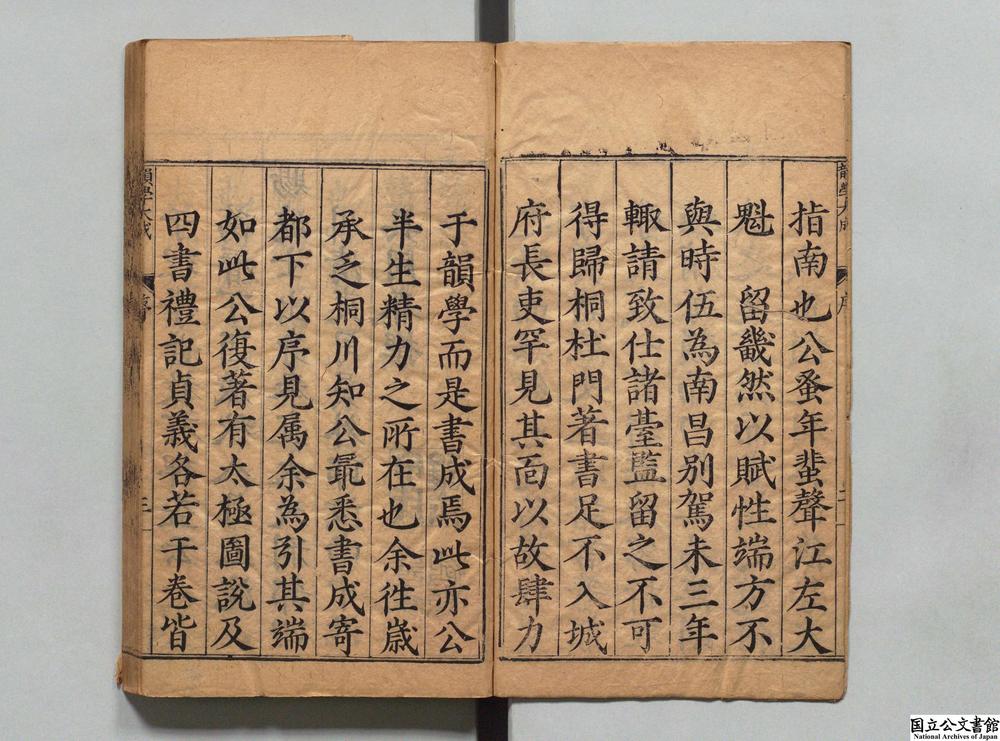 韻學大成
序
二
指南也公蚤年蜚聲江左大
魁　留畿然以賦性端方不
與時伍為南昌別駕未三年
輙請致仕諸臺監留之不可
得歸桐杜門著書足不入城
府長吏罕見其面以故肆力
于韻學而是書成焉此亦公
半生精力之所在也余徃歲
承乏桐川知公最悉書成寄
都下以序見属余為引其端
如此公復著有太極圖說及
四書禮記貞義各若干卷皆
韻學大成
序
三
国立公文書館
National Archives of Japan